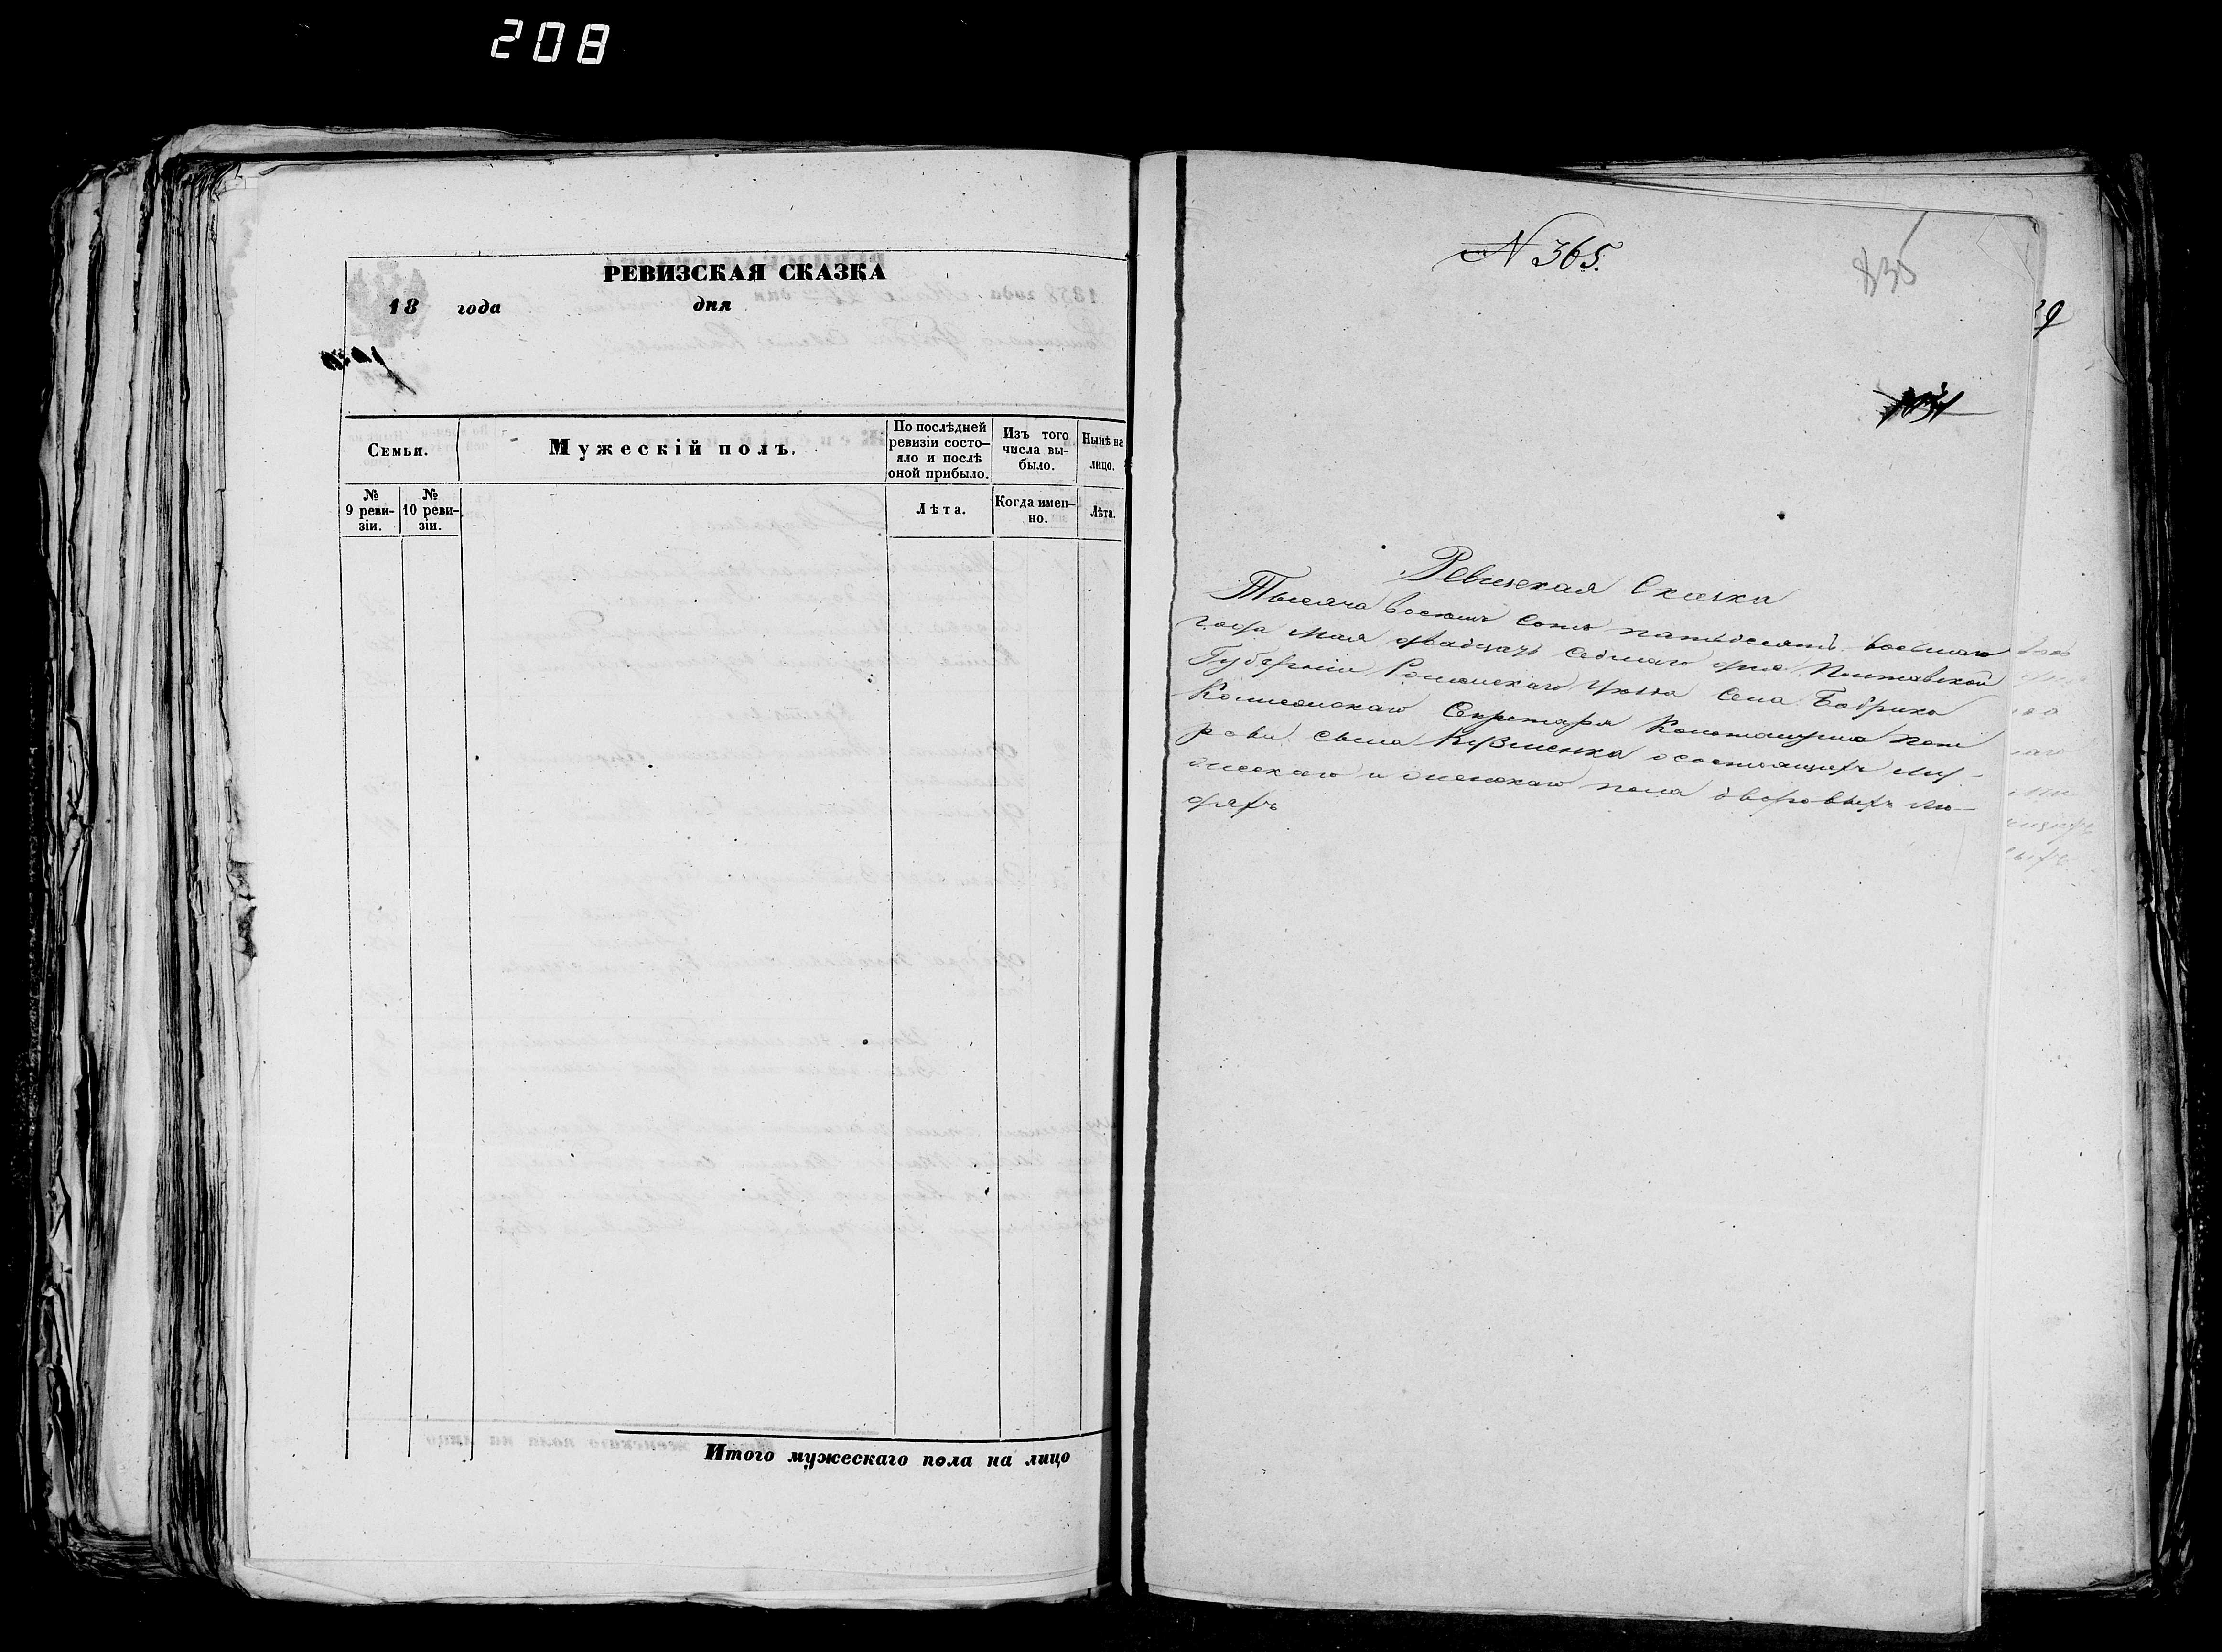 208
РЕВИЗСКАЯ СКАЗКА
18 года дня
Семьи.
Мужескій полъ.
По послѣдней ревизіи состо-
яло и послѣ
оной прибыло.
Изъ того
числа вы-
было.
Нынѣ на
лицо.
№
9 реви-
зіи.
№
10 реви-
зіи.
Лѣта.
Когда имен-
но.
Лѣта.
Итого мужескаго пола на лицо
N 365.
835
Ревизская Сказка
Тысяча восемь сотъ пятьдесятъ восьмаго
года мая двадцать седьмаго дня Полтавской
Губерніи Роменскаго уезда Села Бобрика
Колежскаго Секретаря Константина Пет
рова сына Кузменка о состоящихъ му-
жескаго и женскаго пола дворовыхъ лю-
дяхъ